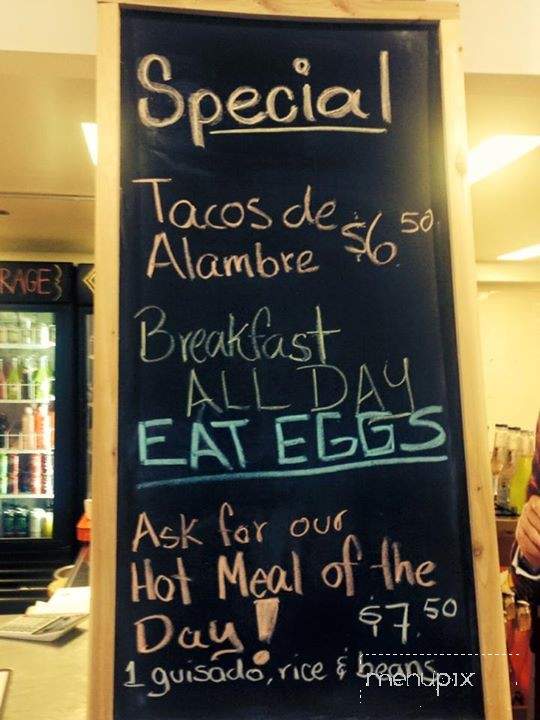 Special
Tacos de
Alambre $6.50
Breakfast
ALL DAY
EAT EGGS
Ask for our
Hot Meal of the
Day! $7.50
1 guisado, rice & beans
menupix
RAGE